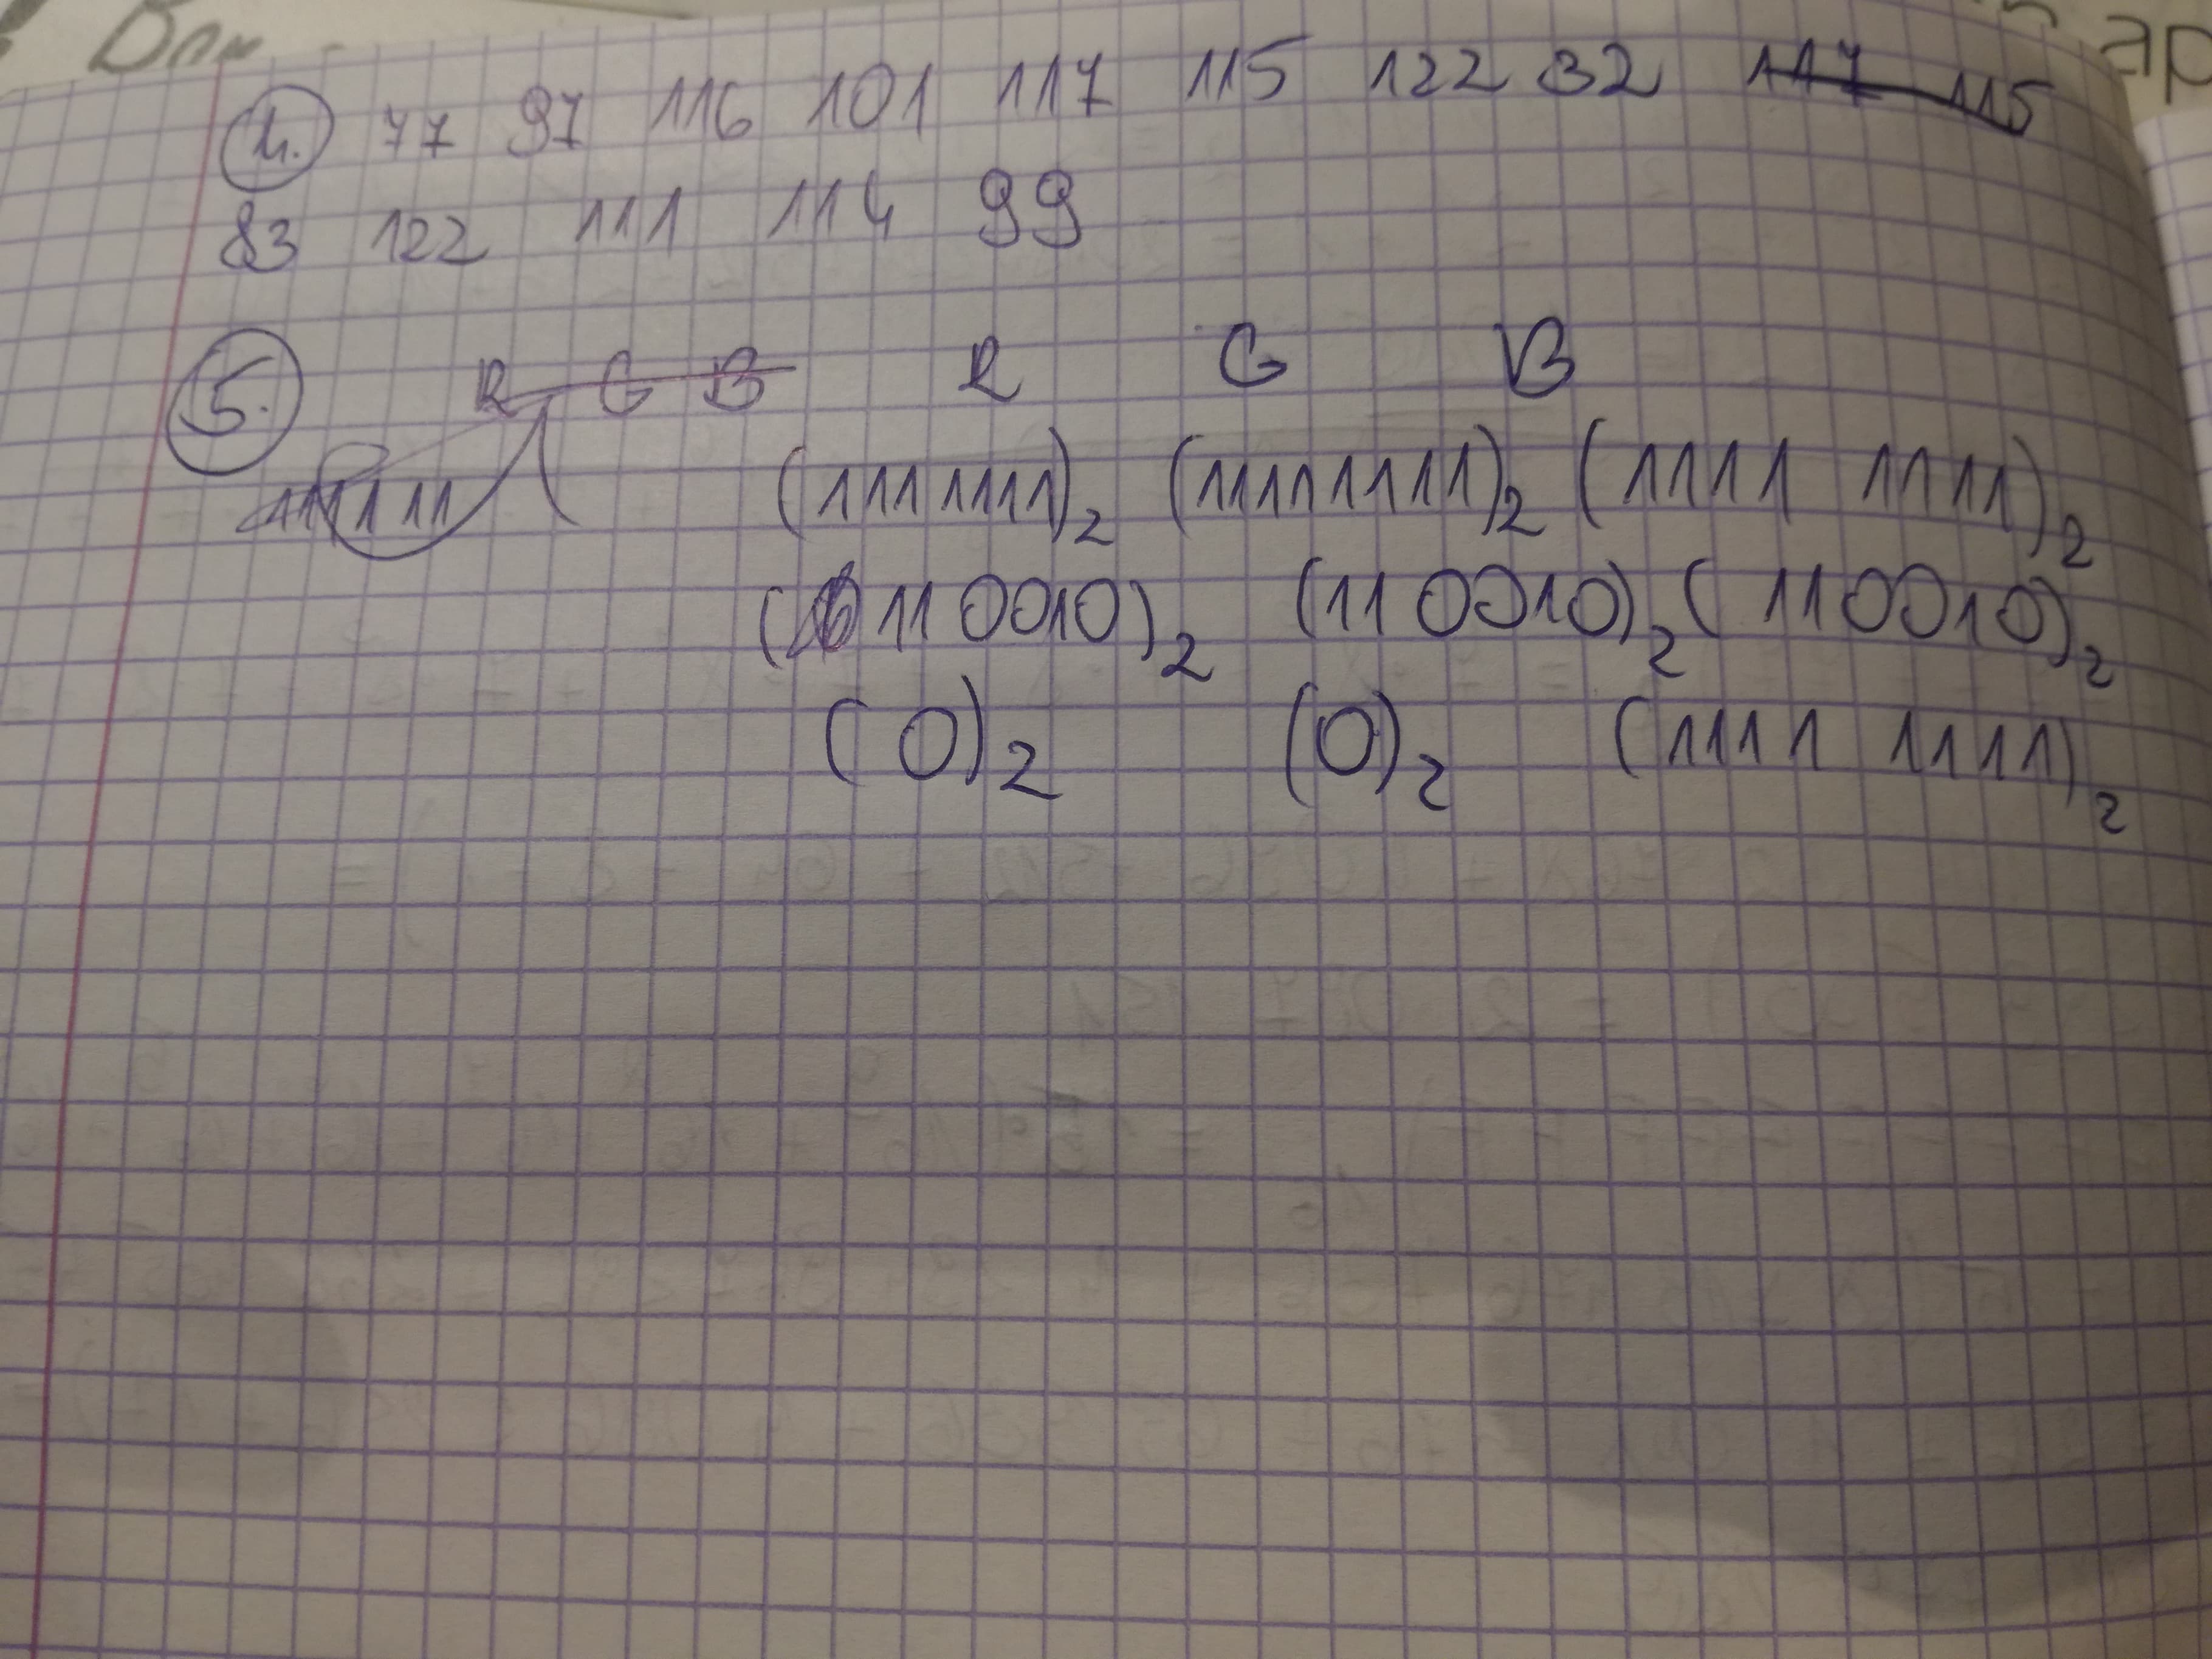 4. 77 97 116 101 117 115 122 32 117 115
83 122 111 114 99
5. R G B R G B
(1111111)₂ (11111111)₂ (1111 1111)₂
(110010)₂ (110010)₂ (110010)₂
(0)₂ (0)₂ (1111 1111)₂